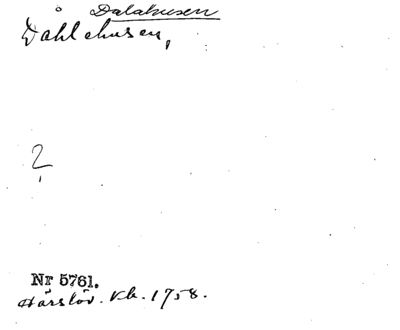 Dalahusen
Dåhlehusen,
2
Nr 5761.
Härslöv. Kb. 1758.